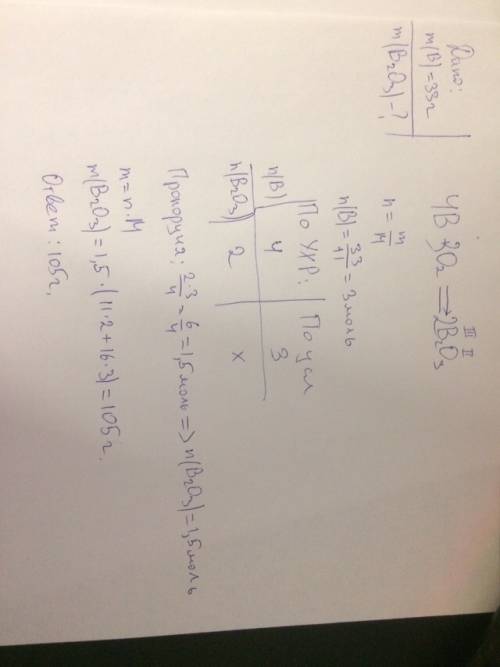 Дано:
m(B)=33г
m(B₂O₃)-?
III II
4B 3O₂ ⟹ 2B₂O₃
n = m/M
n(B)=33/11=3моль
По УХР: По усл
n(B) 4 3
n(B₂O₃) 2 x
Пропорция: 2·3/4=6/4=1,5моль=>n(B₂O₃)=1,5моль
m=n·M
m(B₂O₃)=1,5·(11·2+16·3)=105г.
Ответ: 105г.